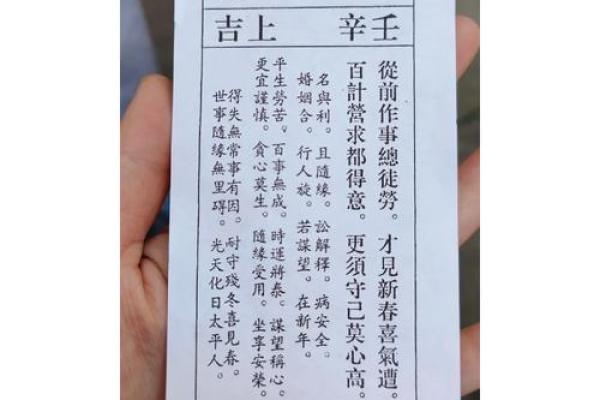 壬辛 上吉
從前作事總徒勞。才見新春喜氣遭。
百計營求都得意。更須守己莫心高。
名與利。且隨緣。訟解釋。病安全。
婚姻合。行人旋。若謀望。在新年。
平生勞苦。百事無成。時運將泰。謀望稱心。
更宜謹慎。貪心莫生。隨緣受用。坐享安榮。
得失無常事有因。耐守殘冬喜見春。
世事隨緣無罣碍。光天化日太平人。